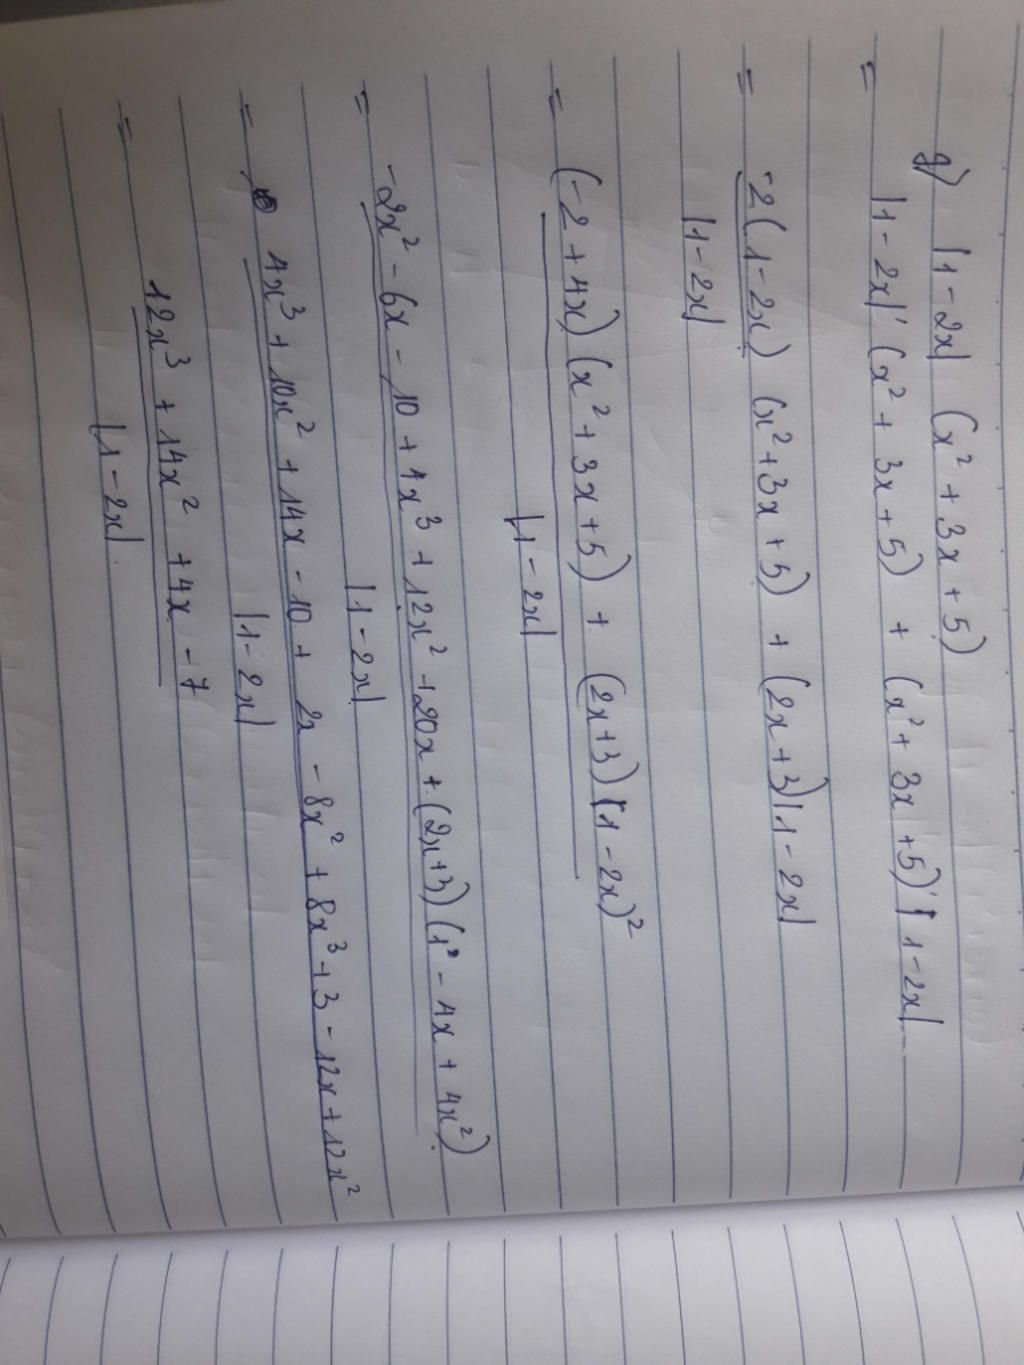 g) |1-2x| (x² + 3x + 5)
= |1-2x|' (x² + 3x + 5) + (x² + 3x + 5)' |1-2x|
= -2(1-2x) (x² + 3x + 5) + (2x+3)|1-2x|
|1-2x|
= (-2 + 4x) (x² + 3x + 5) + (2x+3) (1-2x)²
|1-2x|
= -2x² - 6x - 10 + 4x³ + 12x² + 20x + (2x+3) (1² - 4x + 4x²)
|1-2x|
= 4x³ + 10x² + 14x - 10 + 2x - 8x² + 8x³ + 3 - 12x + 12x²
|1-2x|
= 12x³ + 14x² + 4x - 7
|1-2x|